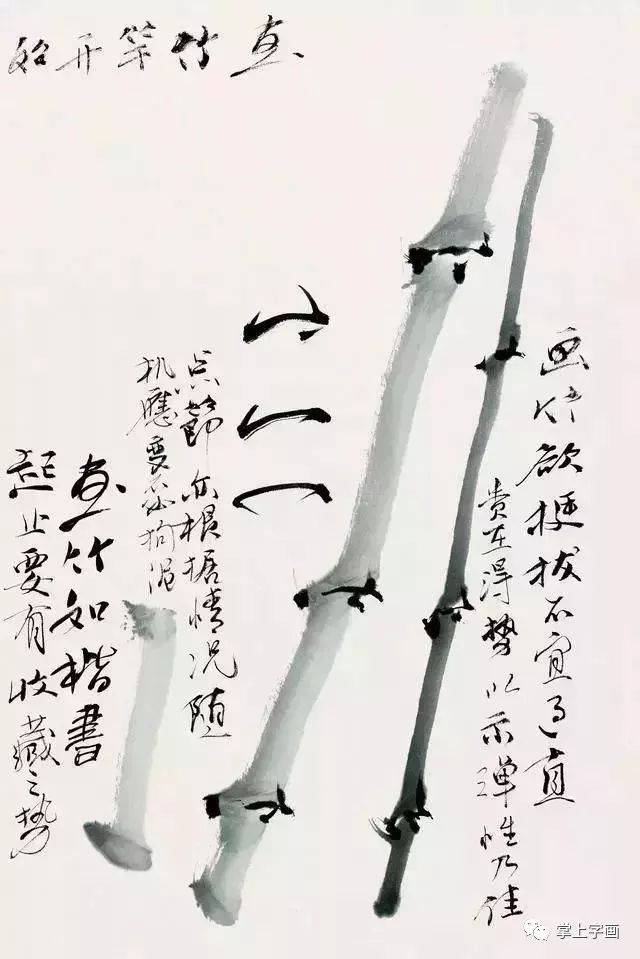 画竹竿开始
画竹欲挺拔不宜过直
贵在得势以示弹性乃佳
点節亦根据情况随
机應变不拘泥
画竹如楷書
起止要有收藏之势
掌上字画